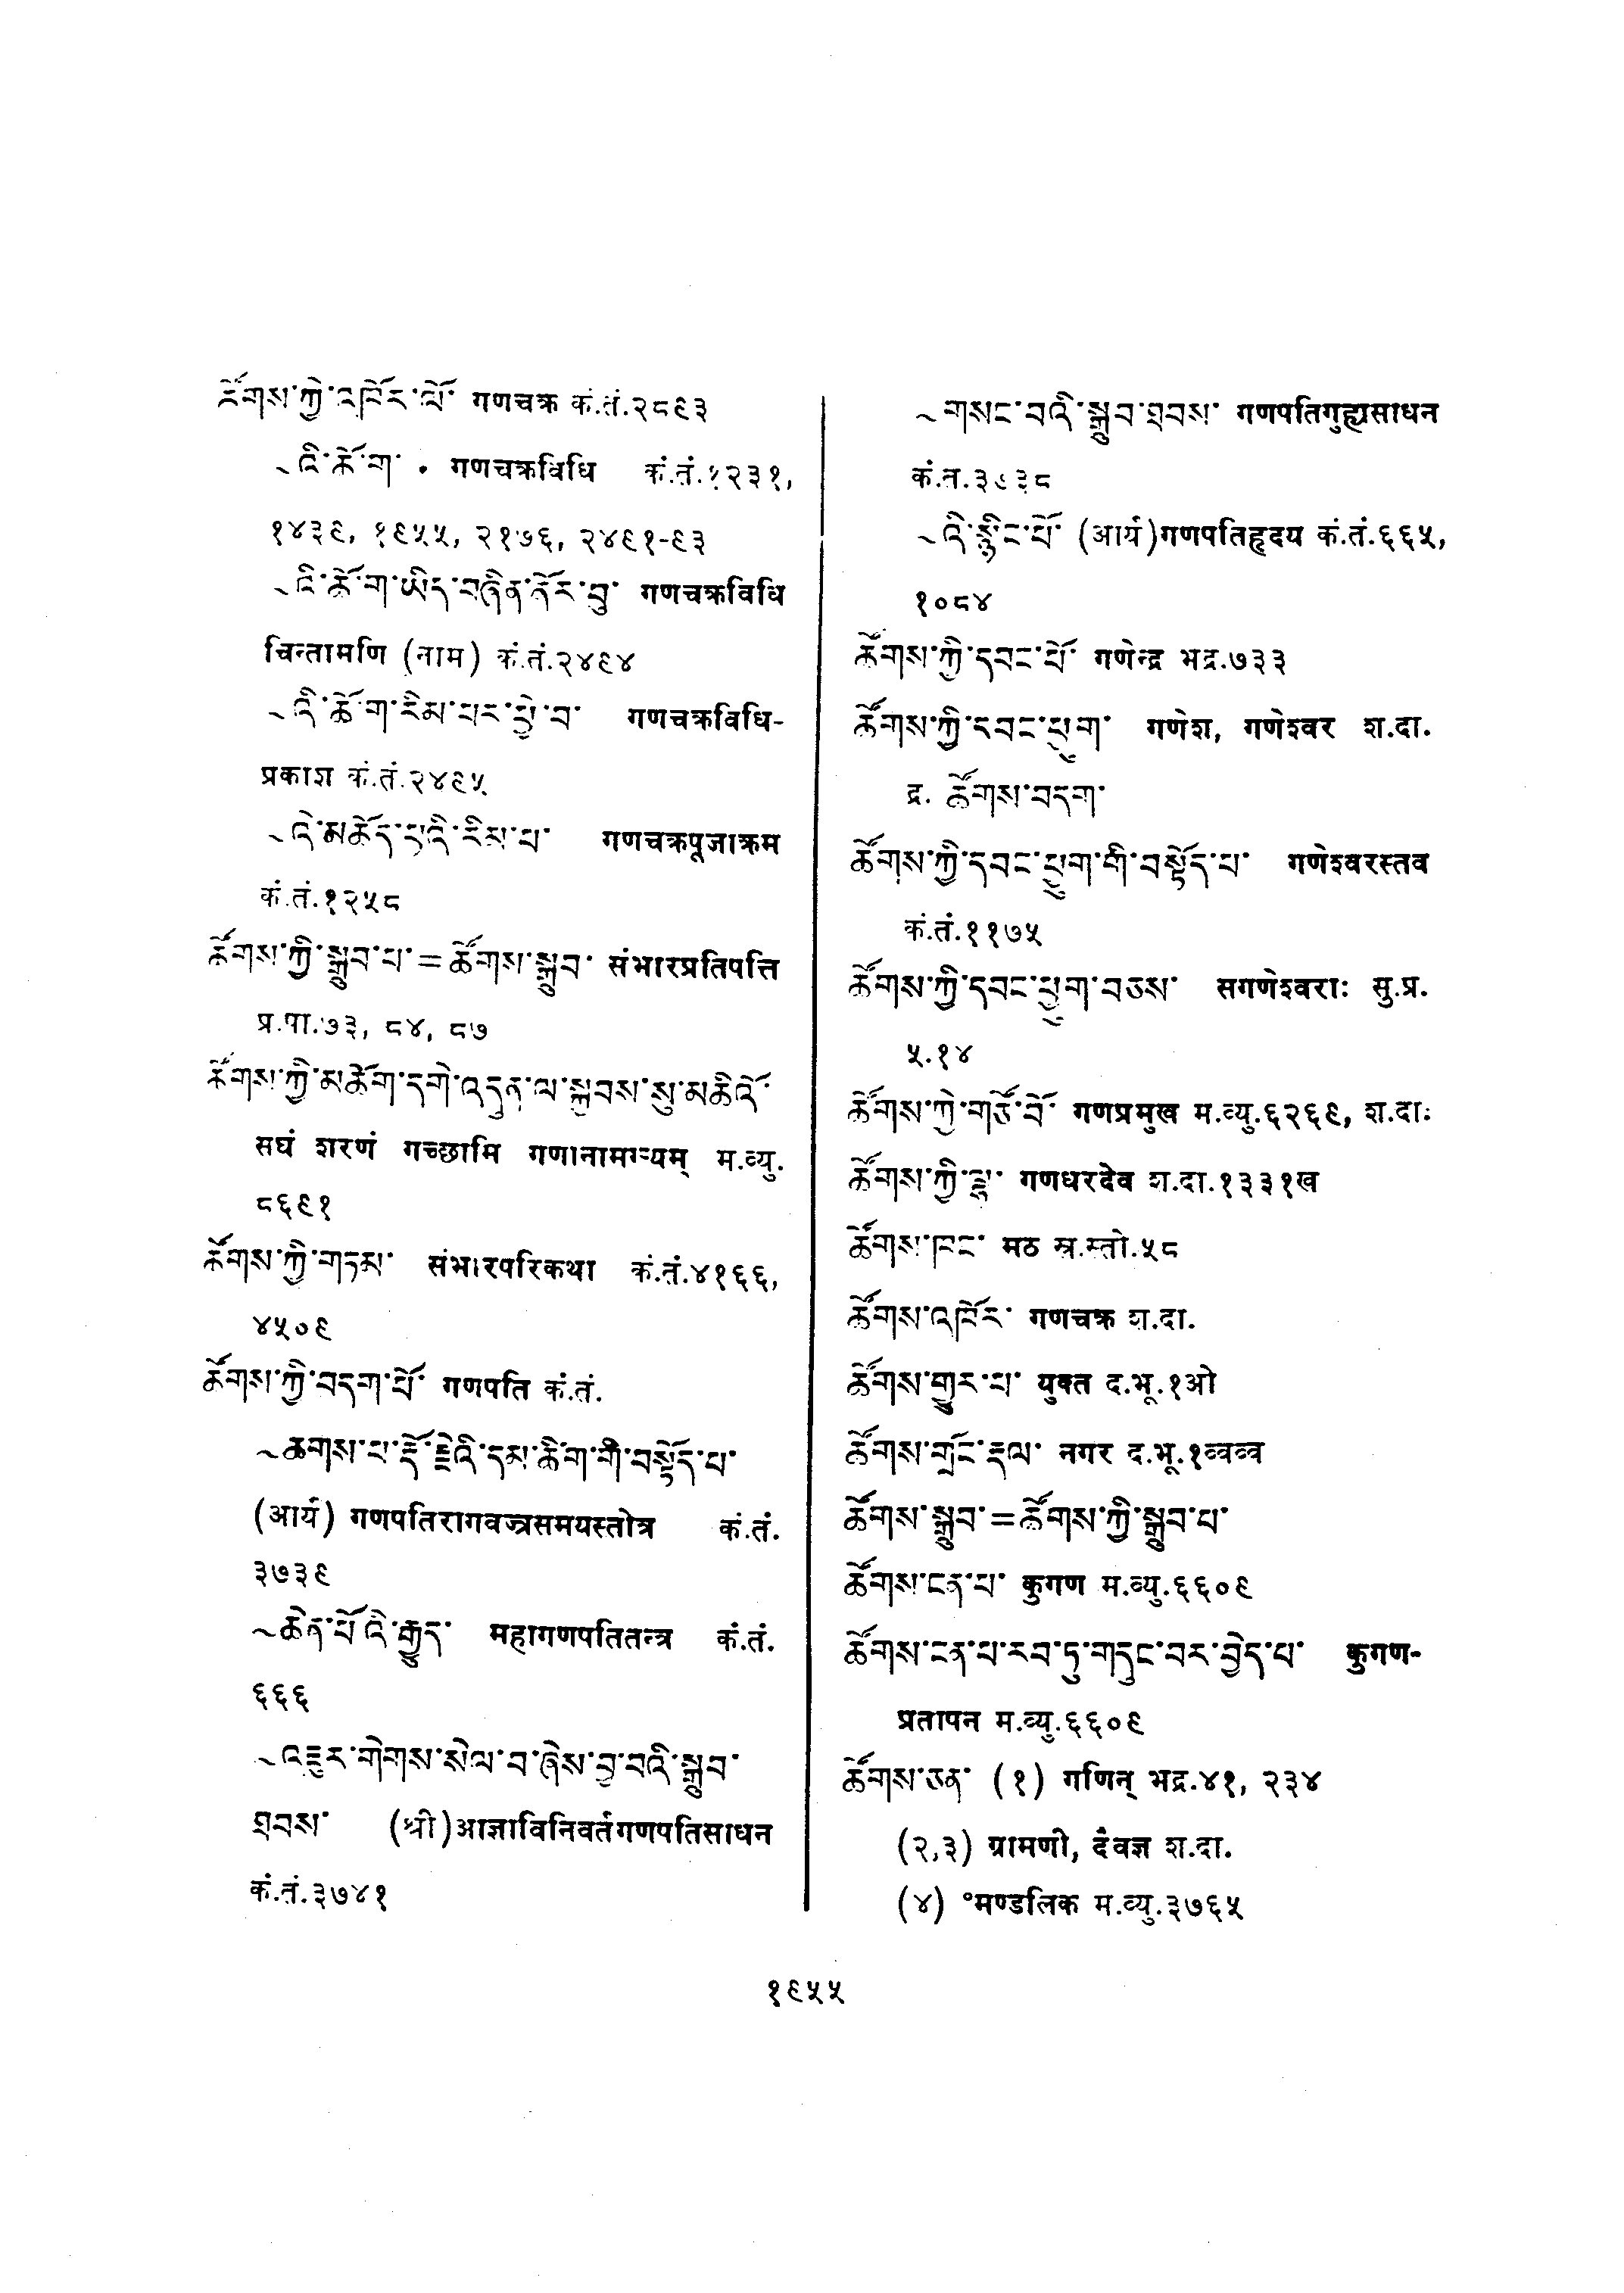 ཚོགས་ཀྱི་འཁོར་ལོ་ गणचक्र कं.तं.२८९३
~འི་ཆོ་ག་ · गणचक्रविधि कं.तं.१२३१,
१४३९, १९५५, २१७६, २४९१-९३
~འི་ཆོ་ག་ཡིད་བཞིན་ནོར་བུ་ गणचक्रविधि
चिन्तामणि (नाम) कं.तं.२४९४
~འི་ཆོ་ག་རིམ་པར་ཕྱེ་བ་ गणचक्रविधि-
प्रकाश कं.तं.२४९५
~འི་མཆོད་པའི་རིམ་པ་ गणचक्रपूजाक्रम
कं.तं.१२५८
ཚོགས་ཀྱི་སྒྲུབ་པ་=ཚོགས་སྒྲུབ་ संभारप्रतिपत्ति
प्र.पा.७३, ८४, ८७
ཚོགས་ཀྱི་མཆོག་དགེ་འདུན་ལ་སྐྱབས་སུ་མཆིའོ་
सघं शरणं गच्छामि गणानामग्र्यम् म.व्यु.
८६९१
ཚོགས་ཀྱི་གཏམ་ संभारपरिकथा कं.तं.४१६६,
४५०९
ཚོགས་ཀྱི་བདག་པོ་ गणपति कं.तं.
~ཆགས་པ་རྡོ་རྗེའི་དམ་ཚིག་གི་བསྟོད་པ་
(आर्य) गणपतिरागवज्रसमयस्तोत्र कं.तं.
३७३९
~ཆེན་པོའི་རྒྱུད་ महागणपतितन्त्र कं.तं.
६६६
~འཇུར་གེགས་སེལ་བ་ཞེས་བྱ་བའི་སྒྲུབ་
ཐབས་ (श्री)आज्ञाविनिवर्तगणपतिसाधन
कं.तं.३७४१
~གསང་བའི་སྒྲུབ་ཐབས་ गणपतिगुह्यसाधन
कं.त.३७३८
~འི་སྙིང་པོ་ (आर्य)गणपतिहृदय कं.तं.६६५,
१०८४
ཚོགས་ཀྱི་དབང་པོ་ गणेन्द्र भद्र.७३३
ཚོགས་ཀྱི་དབང་ཕྱུག་ गणेश, गणेश्वर श.दा.
द्र. ཚོགས་བདག་
ཚོགས་ཀྱི་དབང་ཕྱུག་གི་བསྟོད་པ་ गणेश्वरस्तव
कं.तं.११७५
ཚོགས་ཀྱི་དབང་ཕྱུག་བཅས་ सगणेश्वराः सु.प्र.
५.१४
ཚོགས་ཀྱི་གཙོ་བོ་ गणप्रमुख म.व्यु.६२६९, श.दा.
ཚོགས་ཀྱི་ལྷ་ गणधरदेव श.दा.१३३१ख
ཚོགས་ཁང་ मठ स्र.स्तो.५८
ཚོགས་འཁོར་ गणचक्र श.दा.
ཚོགས་གྱུར་པ་ युक्त द.भू.१ओ
ཚོགས་གྲོང་རྡལ་ नगर द.भू.१व्वव्व
ཚོགས་སྒྲུབ་=ཚོགས་ཀྱི་སྒྲུབ་པ་
ཚོགས་ངན་པ་ कुगण म.व्यु.६६०९
ཚོགས་ངན་པ་རབ་ཏུ་གདུང་བར་བྱེད་པ་ कुगण-
प्रतापन म.व्यु.६६०९
ཚོགས་ཅན་ (१) गणिन् भद्र.४१, २३४
(२,३) ग्रामणी, दैवज्ञ श.दा.
(४) °मण्डलिक म.व्यु.३७६५
१९५५